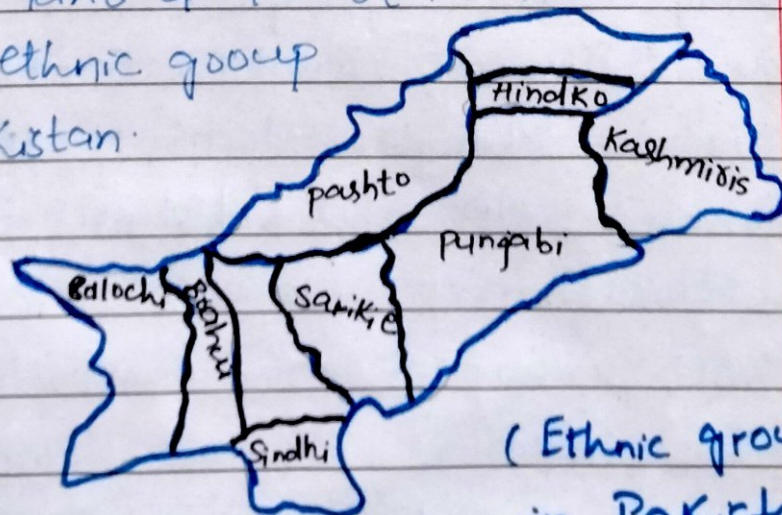 ethnic gooup
kistan.
Hindko
Kashmiris
pashto
pungabi
Balochi
Brahui
Sarikie
Sindhi
( Ethnic grou
in Pakist